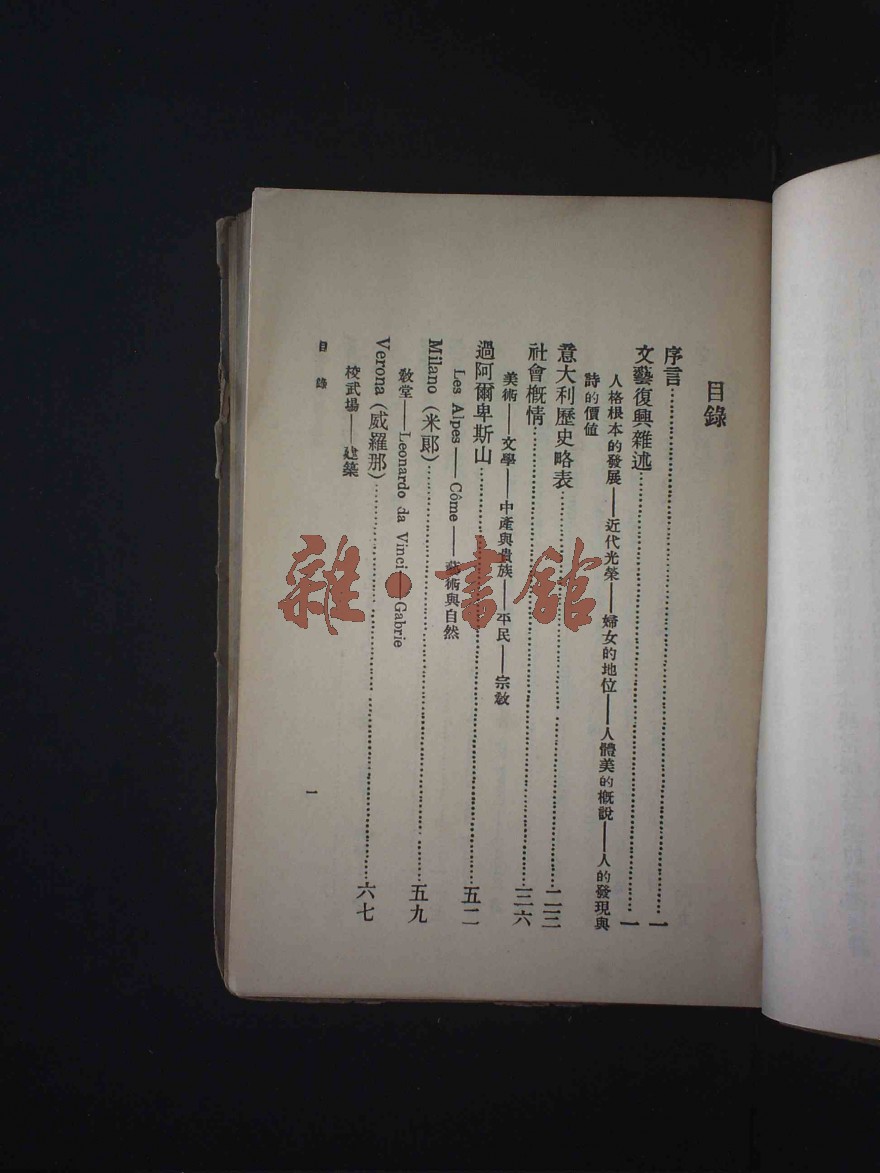 目錄
序言……………………一
文藝復興雜述……………………一
人格根本的發展——近代光榮——婦女的地位——人體美的概說——人的發現與
詩的價值
意大利歷史略表……………………二三
社會概情……………………三六
美術——文學——中產與貴族——平民——宗教
過阿爾卑斯山……………………五二
Les Alpes——Côme——藝術與自然
Milano (米郎)……………………五九
教堂——Leonardo da Vinci——Gabrie
Verona (威羅那)……………………六七
校武場——建築
目錄
一
雜·書館